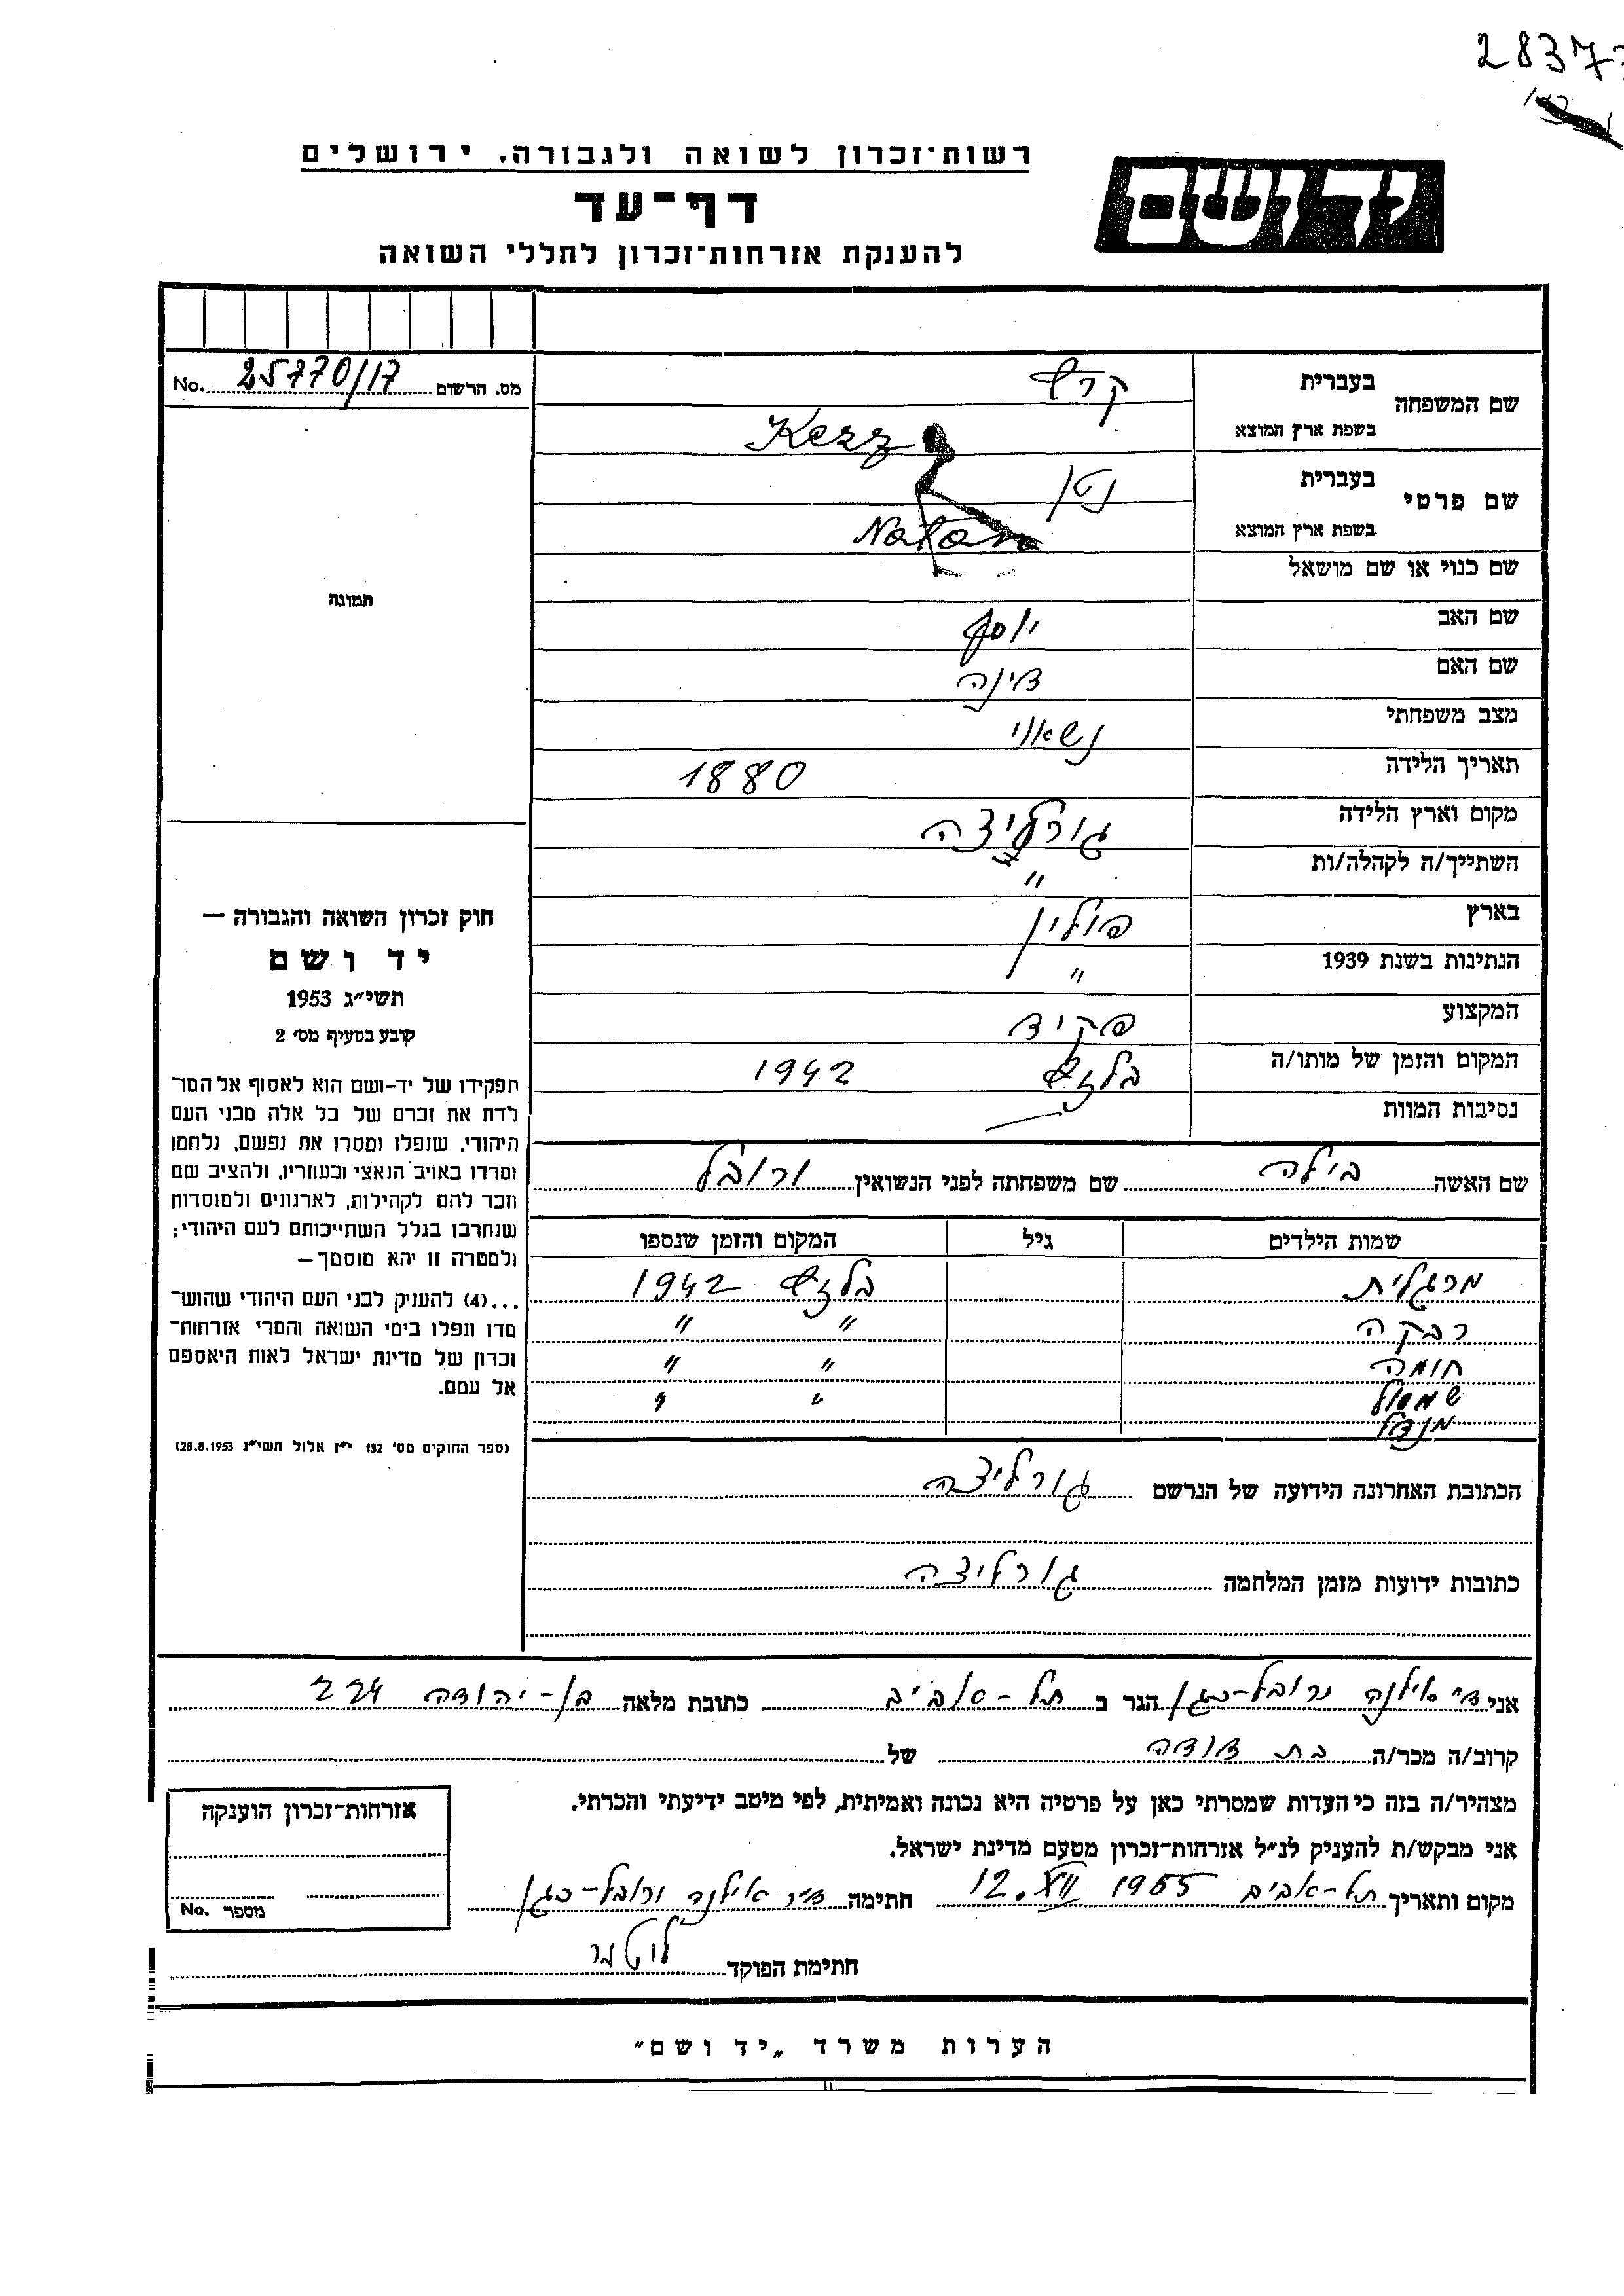 2837
רשות־זכרון לשואה ולגבורה, ירושלים
דף־עד
להענקת אזרחות־זכרון לחללי השואה
יד ושם
מס. הרשום 25770/17 No.
שם המשפחה בעברית
בשפת ארץ המוצא Kerz
שם פרטי בעברית נטן
בשפת ארץ המוצא Natan
שם כנוי או שם מושאל
שם האב יוסף
שם האם דינה
מצב משפחתי נשאוי
תאריך הלידה 1880
מקום וארץ הלידה גורליצה
השתייך/ה לקהלה/ות "
בארץ פולין
הנתינות בשנת 1939 "
המקצוע פקיד
המקום והזמן של מותו/ה בלזץ 1942
נסיבות המוות —
שם האשה בילה שם משפחתה לפני הנשואין ורובל
שמות הילדים גיל המקום והזמן שנספו
מרגלית בלזץ 1942
רבקה " "
חומה " "
שמואל " "
מנדל
הכתובת האחרונה הידועה של הנרשם גורליצה
כתובות ידועות מזמן המלחמה גורליצה
תמונה
חוק זכרון השואה והגבורה —
יד ושם
תשי״ג 1953
קובע בסעיף מס׳ 2
תפקידו של יד-ושם הוא לאסוף אל המו־
לדת את זכרם של כל אלה מבני העם
היהודי, שנפלו ומסרו את נפשם, נלחמו
ומרדו באויב הנאצי ובעוזריו, ולהציב שם
וזכר להם לקהילות, לארגונים ולמוסדות
שנחרבו בגלל השתייכותם לעם היהודי;
ולמטרה זו יהא מוסמך—
...(4) להעניק לבני העם היהודי שהוש־
מדו ונפלו בימי השואה והמרי אזרחות־
זכרון של מדינת ישראל לאות היאספם
אל עמם.
(ספר החוקים מס׳ 132 י״ז אלול תשי״ג 28.8.1953)
אני ד״ר אילנה ורובל-כגן הגר ב תל-אביב כתובת מלאה בן-יהודה 224
קרוב/ה מכר/ה בת דודה של
מצהיר/ה בזה כי העדות שמסרתי כאן על פרטיה היא נכונה ואמיתית, לפי מיטב ידיעתי והכרתי.
אני מבקש/ת להעניק לנ״ל אזרחות־זכרון מטעם מדינת ישראל.
מקום ותאריך תל-אביב 12.XII 1955 חתימה ד״ר אילנה ורובל-כגן
חתימת הפוקד
אזרחות־זכרון הוענקה
מספר No.
הערות משרד „יד ושם״